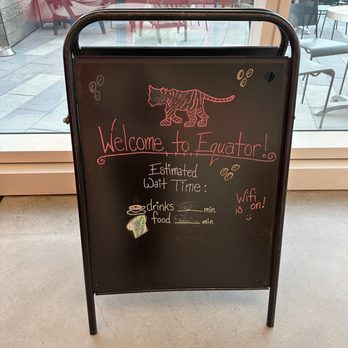 Welcome to Equator!
Estimated
Wait Time:
drinks ____ min.
food ____ min.
Wifi
is on!